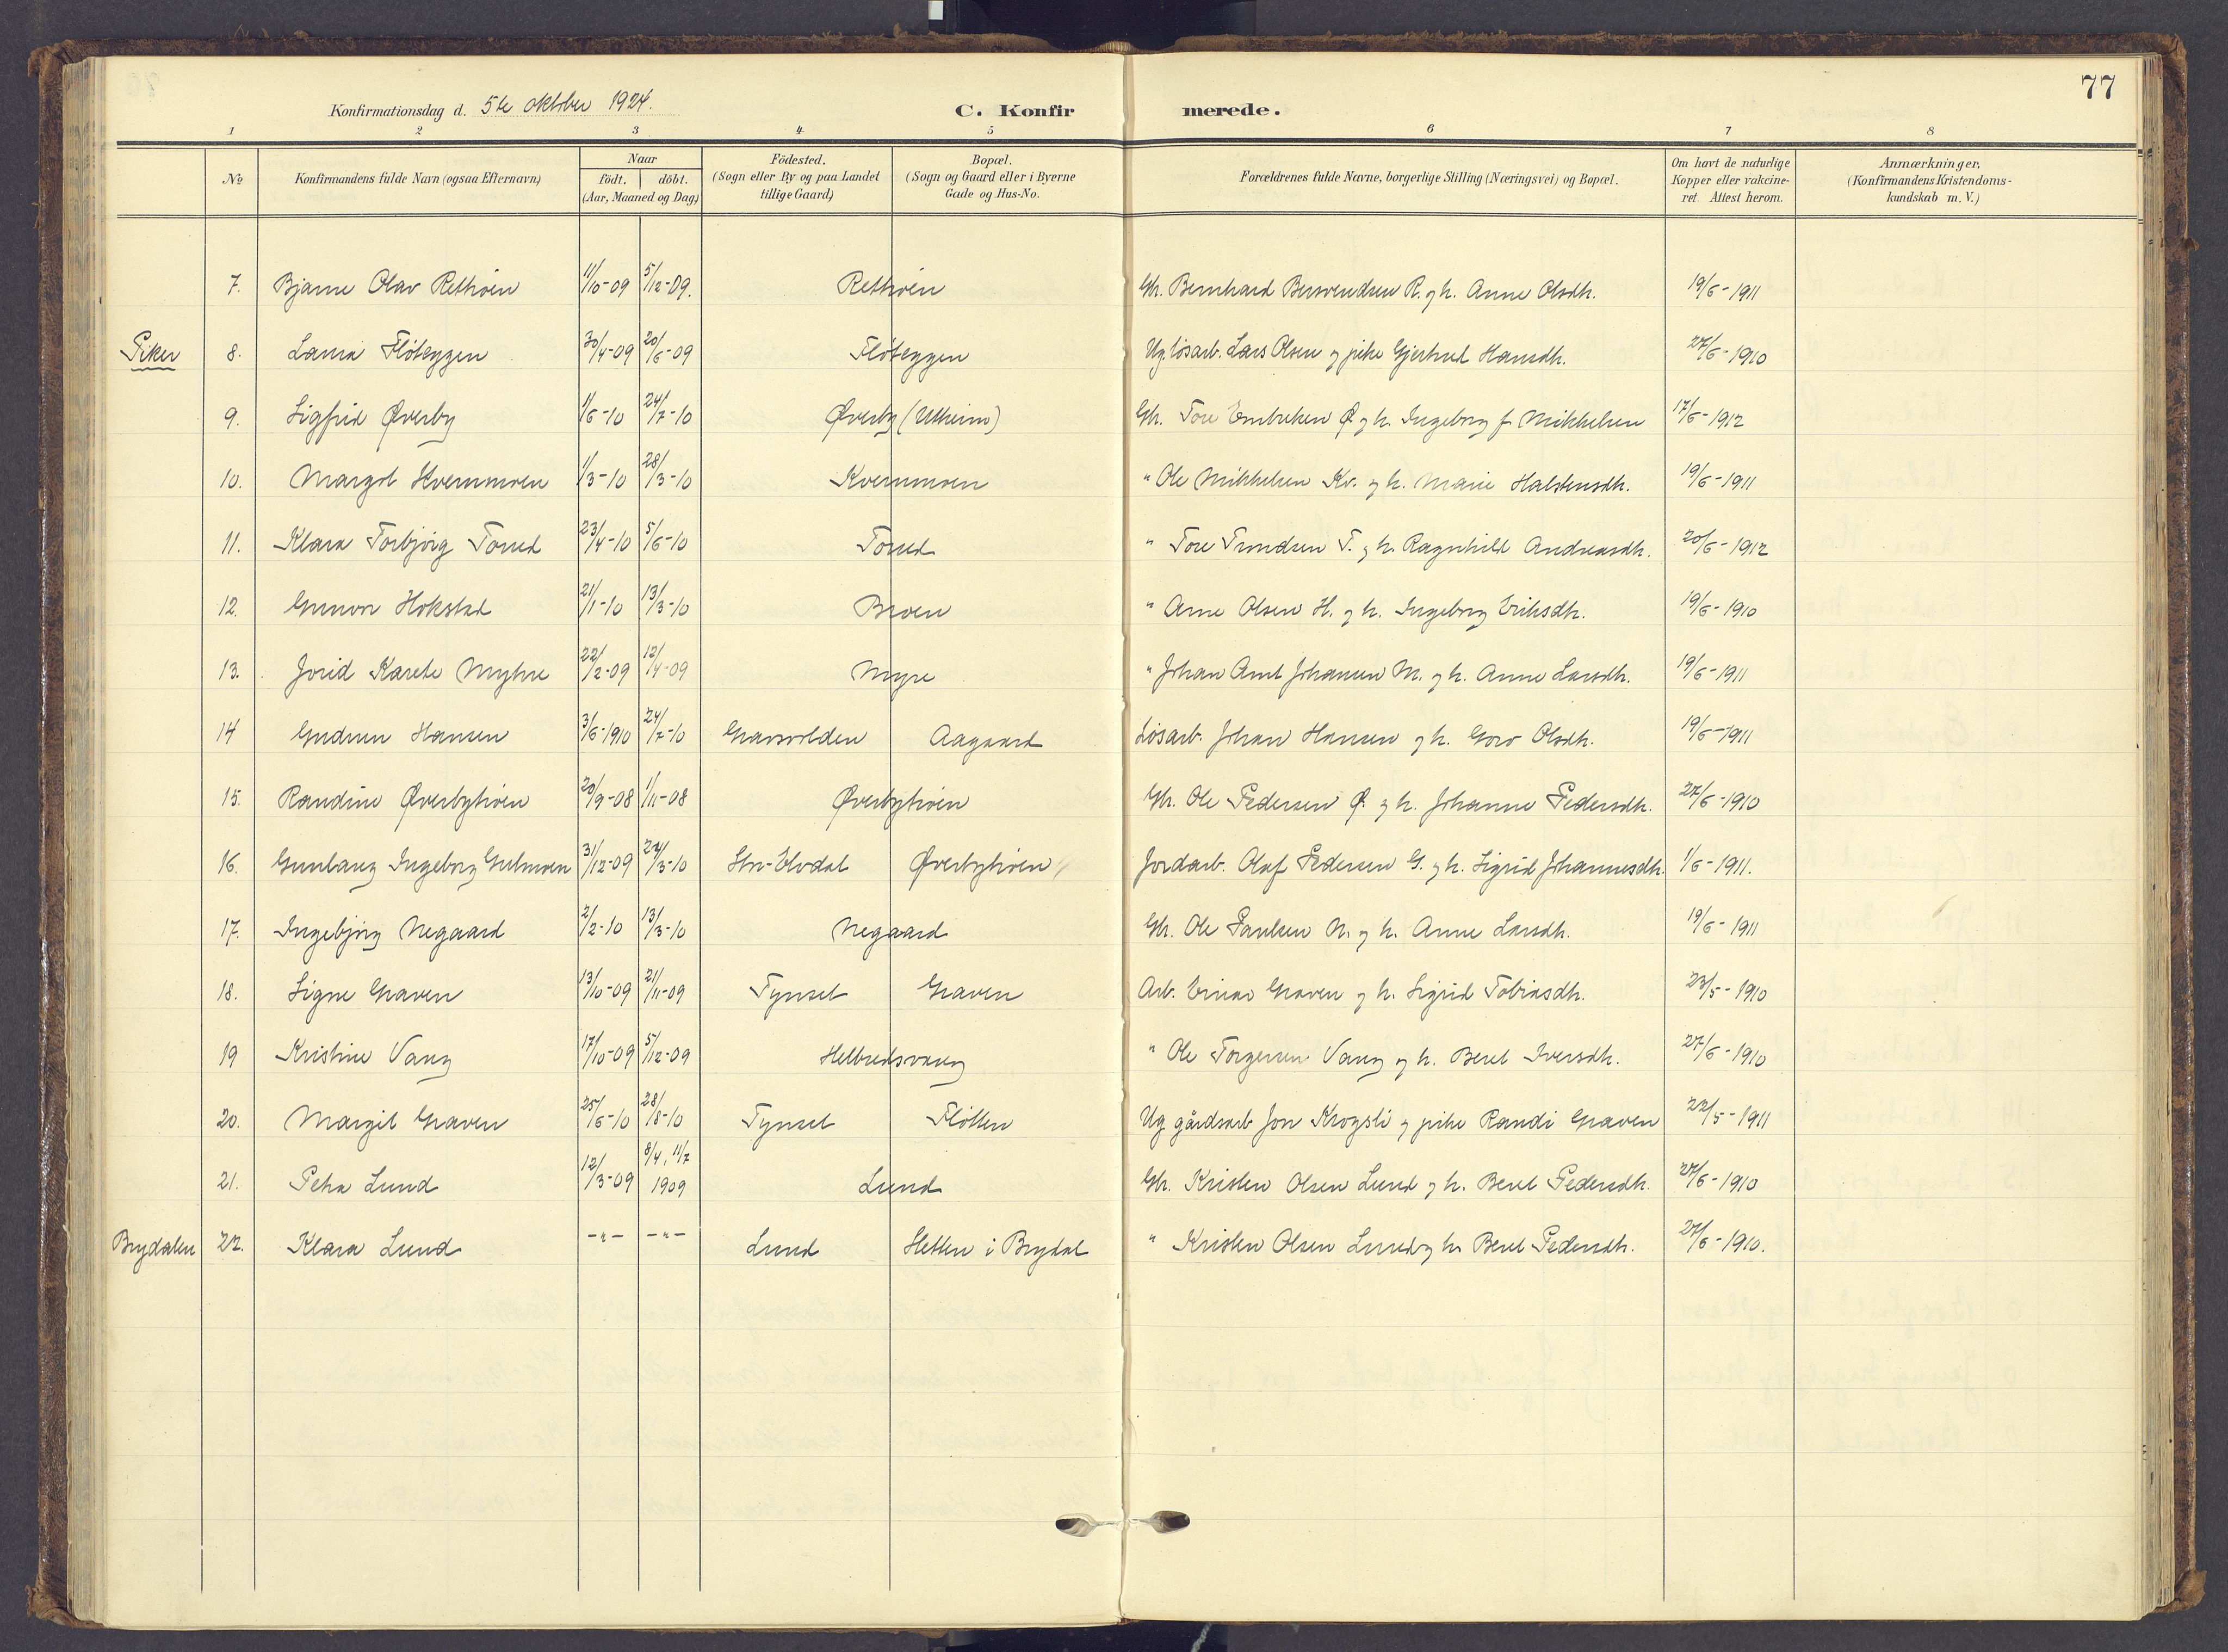 77
Konfirmationsdag d. 5te oktober 1924.
C. Konfirmerede.
1 2 3 4 5 6 7 8
No
Konfirmandens fulde Navn (ogsaa Efternavn)
Naar födt. döbt. (Aar, Maaned og Dag)
Födested. (Sogn eller By og paa Landet tillige Gaard)
Bopæl. (Sogn og Gaard eller i Byerne Gade og Hus-No.
Forældrenes fulde Navne, borgerlige Stilling (Næringsvei) og Bopæl.
Om havt de naturlige Kopper eller vakcineret. Attest herom.
Anmærkninger. (Konfirmandens Kristendomskundskab m. V.)
7. Bjarne Olav Rethøen 11/10-09 5/12-09. Rethøen Gbr. Bernhard Bersvendsen R. og h. Anne Olsdtr. 19/6-1911
Piker 8. Laura Fløteggen 30/4-09 20/6-09 Fløteggen Ug. løsarb. Lars Olsen og pike Gjertrud Hansdtr. 27/6-1910
9. Sigfrid Øverby 1/6-10 24/7-10 Øverby (Utheim) Gbr. Tore Embretsen Ø. og h. Ingeborg f. Mikkelsen 17/6-1912
10. Margit Kvernmoen 1/3-10 28/3-10 Kvernmoen " Ole Mikkelsen Kv. og h. Marie Halstensdtr. 19/6-1911
11. Klara Torbjørg Torud 23/4-10 5/6-10 Torud " Tore Trondsen T. og h. Ragnhild Andreasdtr. 20/6-1912
12. Gunvor Hokstad 21/1-10 13/3-10 Broen " Arne Olsen H. og h. Ingeborg Eriksdtr. 19/6-1910
13. Jorid Karete Myhre 22/2-09 12/4-09 Myre " Johan Arnt Johansen M. og h. Anne Larsdtr. 19/6-1911
14 Gudrun Hansen 3/6-1910 24/7-10 Gravvolden Aagaard Løsarb. Johan Hansen og h. Goro Olsdtr. 19/6-1911
15. Randine Øverbyhøen 20/9-08 1/11-08 Øverbyhøen Gbr. Ole Pedersen Ø. og h. Johanne Pedersdtr. 27/6-1910
16. Gunlaug Ingeborg Gulmoen 31/12-09 24/3-10 Stor-Elvdal Øverbyhøen Jordarb. Olaf Pedersen G. og h. Sigrid Johannesdtr. 1/6-1911.
17. Ingebjørg Negaard 2/2-10 13/3-10 Negaard Gbr. Ole Paulsen N. og h. Anne Larsdtr. 19/6-1911
18. Signe Graven 13/10-09 21/11-09 Tynset Graven Arb. Einar Graven og h. Sigrid Tobiasdtr. 23/5-1910
19 Kristine Vang 17/10-09 5/12-09 Helbredsvang " Ole Torgersen Vang og h. Beret Iversdtr. 27/6-1910
20. Margit Graven 25/6-10 28/8-10 Tynset Fløtten Ug gårdsarb Jon Krogsli og pike Randi Graven 22/5-1911
21. Petra Lund 12/3-09 8/4, 11/7 1909 Lund Gbr. Kristen Olsen Lund og h. Beret Pedersdtr. 27/6-1910
Brydalen 22. Klara Lund -"- -"- Lund Hetten i Brydal " Kristen Olsen Lund og h. Beret Pedersdtr. 27/6-1910.